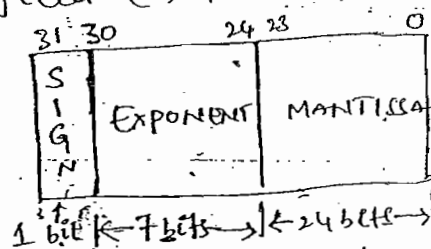 31 30 24 23 0
S
I
G
N
EXPONENT
MANTISSA
1 bit 7 bits 24 bits